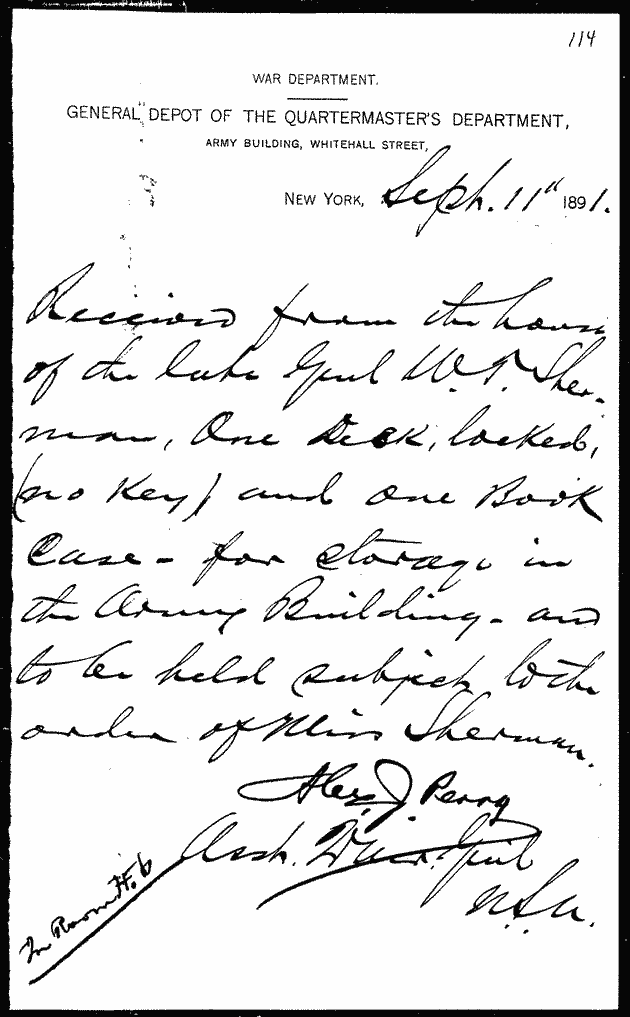 114
WAR DEPARTMENT.
GENERAL DEPOT OF THE QUARTERMASTER'S DEPARTMENT,
ARMY BUILDING, WHITEHALL STREET,
NEW YORK, Sept. 11th 1891.
Received from the house
of the late Genl W. T. Sher-
man, One Desk, locked,
(no Key) and one Book
Case - for storage in
the Army Building - and
to be held subject to the
order of Miss Sherman.
Alex. J. Perry
Asst. Qr. Mr. Genl
U.S.A.
In Room H. 6